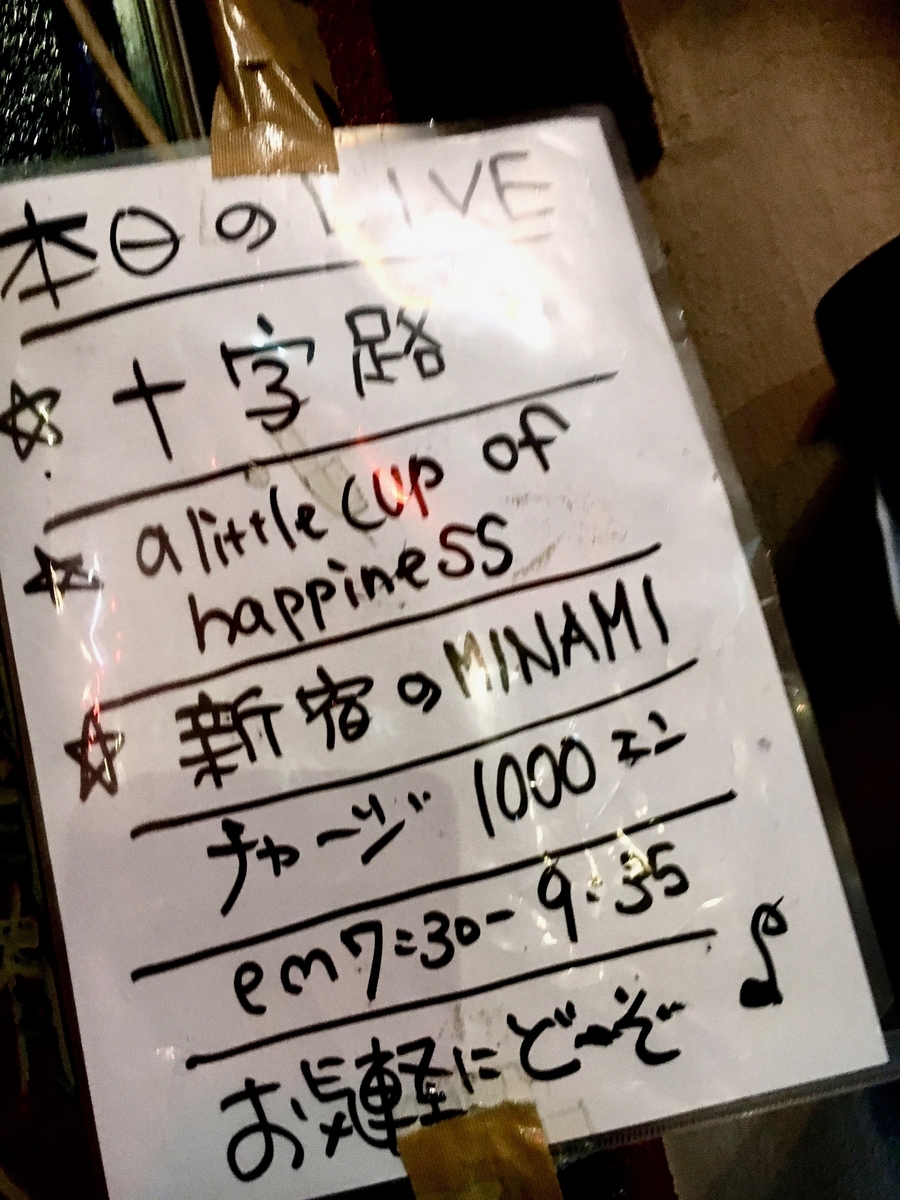 本日のLIVE
☆ 十字路
☆ a little cup of
happiness
☆ 新宿のMINAMI
チャージ 1000エン
em7:30-9:35
お気軽にどーぞー♪